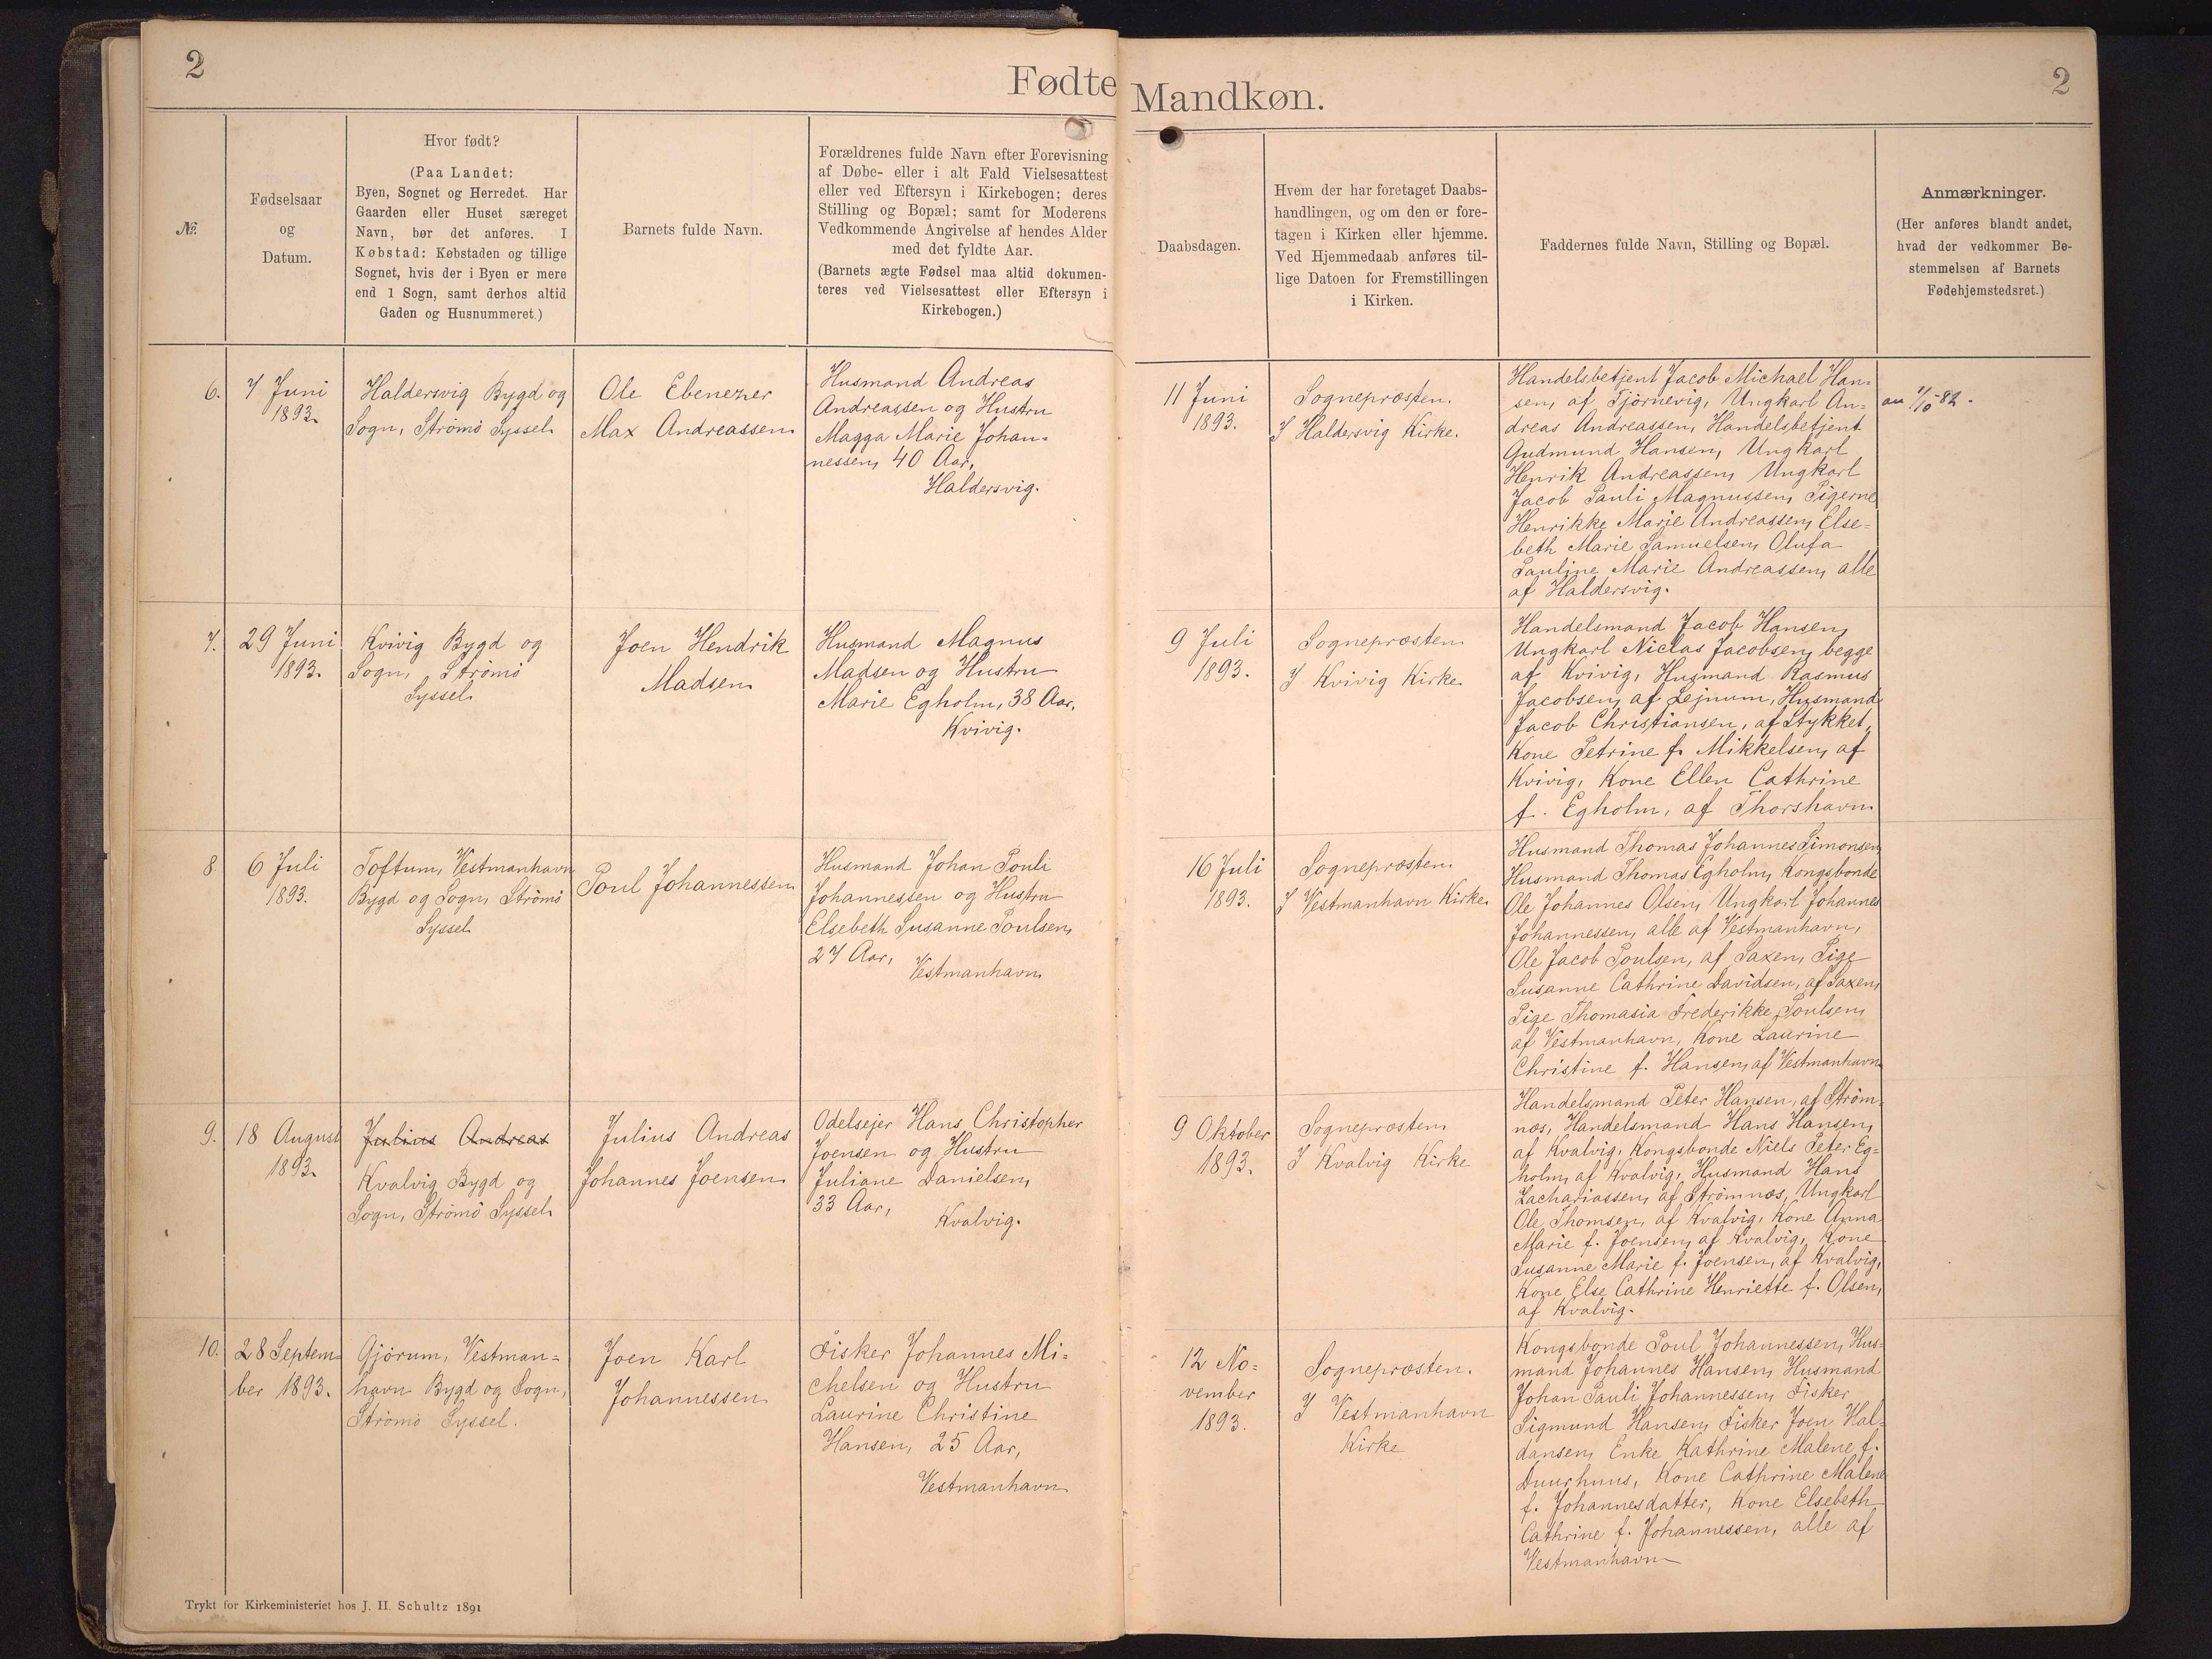 2
Fødte
Mandkøn.
2
№.
Fødselsaar
og
Datum.
Hvor født?
(Paa Landet:
Byen, Sognet og Herredet. Har
Gaarden eller Huset særeget
Navn, bør det anføres. I
Købstad: Købstaden og tillige
Sognet, hvis der i Byen er mere
end 1 Sogn, samt derhos altid
Gaden og Husnummeret.)
Barnets fulde Navn.
Forældrenes fulde Navn efter Forevisning
af Døbe- eller i alt Fald Vielsesattest
eller ved Eftersyn i Kirkebogen; deres
Stilling og Bopæl; samt for Moderens
Vedkommende Angivelse af hendes Alder
med det fyldte Aar.
(Barnets ægte Fødsel maa altid dokumen-
teres ved Vielsesattest eller Eftersyn i
Kirkebogen.)
Daabsdagen.
Hvem der har foretaget Daabs-
handlingen, og om den er fore-
tagen i Kirken eller hjemme.
Ved Hjemmedaab anføres til-
lige Datoen for Fremstillingen
i Kirken.
Faddernes fulde Navn, Stilling og Bopæl.
Anmærkninger.
(Her anføres blandt andet,
hvad der vedkommer Be-
stemmelsen af Barnets
Fødehjemstedsret.)
6.
7 Juni
1893.
Haldersvig Bygd og
Sogn, Strömö Syssel.
Ole Ebenezer
Max Andreassen.
Husmand Andreas
Andreassen og Hustru
Magga Marie Johan-
nessen, 40 Aar,
Haldersvig.
11 Juni
1893.
Sognepræsten.
I Haldersvig Kirke.
Handelsbetjent Jacob Michael Han-
sen, af Tjörnevig, Ungkarl An-
dreas Andreassen, Handelsbetjent
Gudmund Hansen, Ungkarl
Henrik Andreassen, Ungkarl
Jacob Pauli Magnussen, Pigerne
Henrikke Marie Andreassen, Else-
beth Marie Samuelsen, Olufa
Pauline Marie Andreassen, alle
af Haldersvig.
7.
29 Juni
1893.
Kvivig Bygd og
Sogn, Strömö
Syssel.
Joen Hendrik
Madsen.
Husmand Magnus
Madsen og Hustru
Marie Egholm, 38 Aar,
Kvivig.
9 Juli
1893.
Sognepræsten.
I Kvivig Kirke.
Handelsmand Jacob Hansen,
Ungkarl Niclas Jacobsen, begge
af Kvivig, Husmand Rasmus
Jacobsen, af Lejnum, Husmand
Jacob Christiansen, af Stykket,
Kone Petrine f. Mikkelsen, af
Kvivig, Kone Ellen Cathrine
f. Egholm, af Thorshavn.
8.
6 Juli
1893.
Toftum, Vestmanhavn
Bygd og Sogn, Strömö
Syssel.
Poul Johannessen.
Husmand Johan Pouli
Johannessen og Hustru
Elsebeth Susanne Poulsen,
27 Aar,
Vestmanhavn.
16 Juli
1893.
Sognepræsten.
I Vestmanhavn Kirke.
Husmand Thomas Johannes Simonsen,
Husmand Thomas Egholm, Kongsbonde
Ole Johannes Olsen, Ungkarl Johannes
Johannessen, alle af Vestmanhavn,
Ole Jacob Poulsen, af Saxen, Pige
Susanne Cathrine Davidsen, af Saxen,
Pige Thomasia Frederikke Poulsen,
af Vestmanhavn, Kone Laurine
Christine f. Hansen, af Vestmanhavn.
9.
18 August
1893.
Julius Andreas
Kvalvig Bygd og
Sogn, Strömö Syssel.
Julius Andreas
Johannes Joensen.
Odelsejer Hans Christopher
Joensen og Hustru
Juliane Danielsen,
33 Aar,
Kvalvig.
9 Oktober
1893.
Sognepræsten.
I Kvalvig Kirke.
Handelsmand Peter Hansen, af Ström-
næs, Handelsmand Hans Hansen,
af Kvalvig, Kongsbonde Niels Peter Eg-
holm, af Kvalvig, Husmand Hans
Zachariassen, af Strömnæs, Ungkarl
Ole Thomsen, af Kvalvig, Kone Anna
Marie f. Joensen, af Kvalvig, Kone
Susanne Marie f. Joensen, af Kvalvig,
Kone Else Cathrine Henriette f. Olsen,
af Kvalvig.
10.
28 Septem-
ber 1893.
Gjörum, Vestman-
havn Bygd og Sogn,
Strömö Syssel.
Joen Karl
Johannessen.
Fisker Johannes Mi-
chelsen og Hustru
Laurine Christine
Hansen, 25 Aar,
Vestmanhavn.
12 No-
vember
1893.
Sognepræsten.
I Vestmanhavn
Kirke
Kongsbonde Poul Johannessen, Hus-
mand Johannes Hansen, Husmand
Johan Pauli Johannessen, Fisker
Sigmund Hansen, Fisker Joen Hal-
dansen, Enke Kathrine Malene f.
Duurhuus, Kone Cathrine Malene
f. Johannesdatter, Kone Elsebeth
Cathrine f. Johannessen, alle af
Vestmanhavn.
Trykt for Kirkeministeriet hos J. H. Schultz 1891